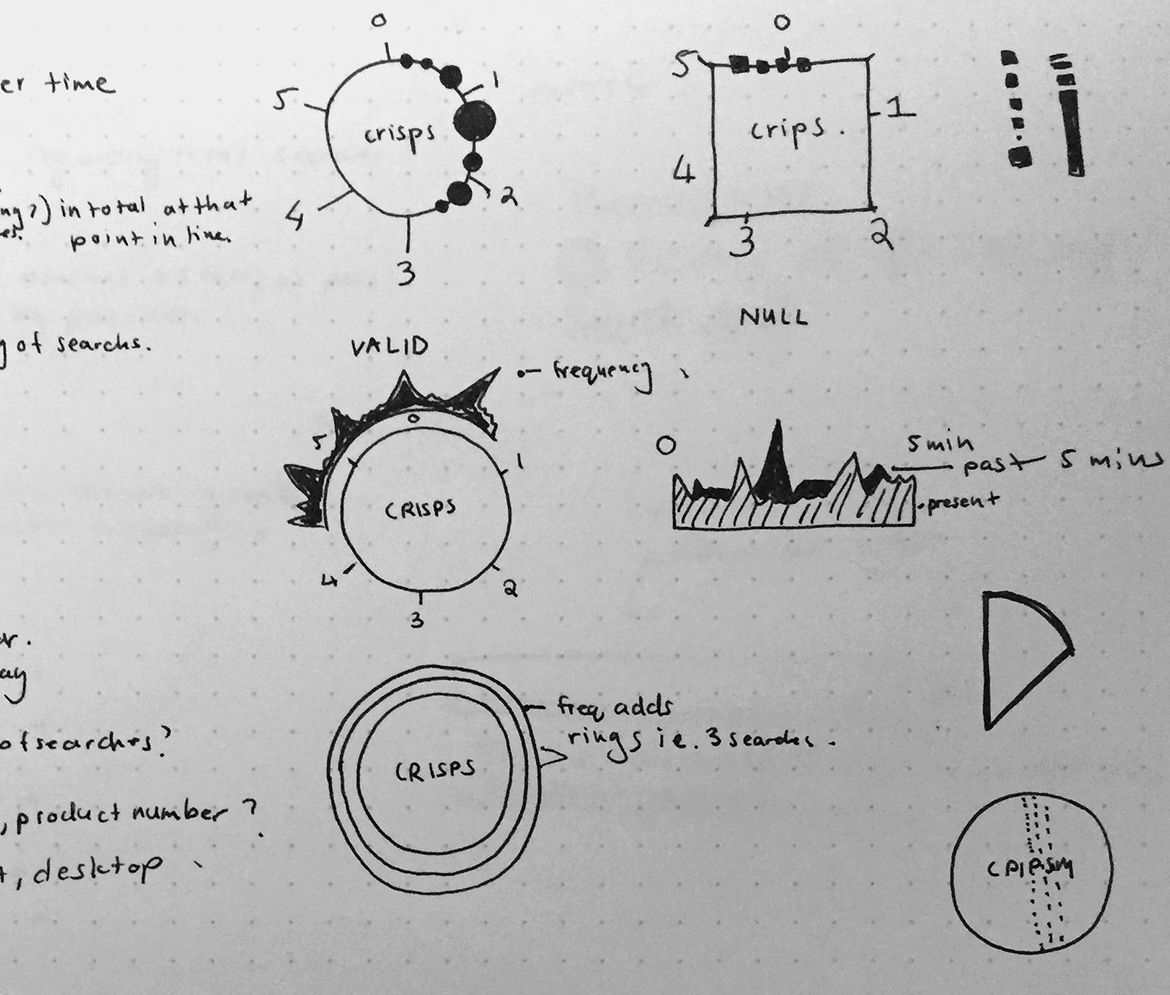 er time
in total at that
point in line.
g of searchs.
ay
of searches?
, product number ?
t, desktop
0
1
2
3
4
5
crisps
0
1
2
3
4
5
crips.
VALID
NULL
frequency
0
1
2
3
4
5
CRISPS
0
5min
past 5 mins
present
CRISPS
freq adds
rings ie. 3 searches.